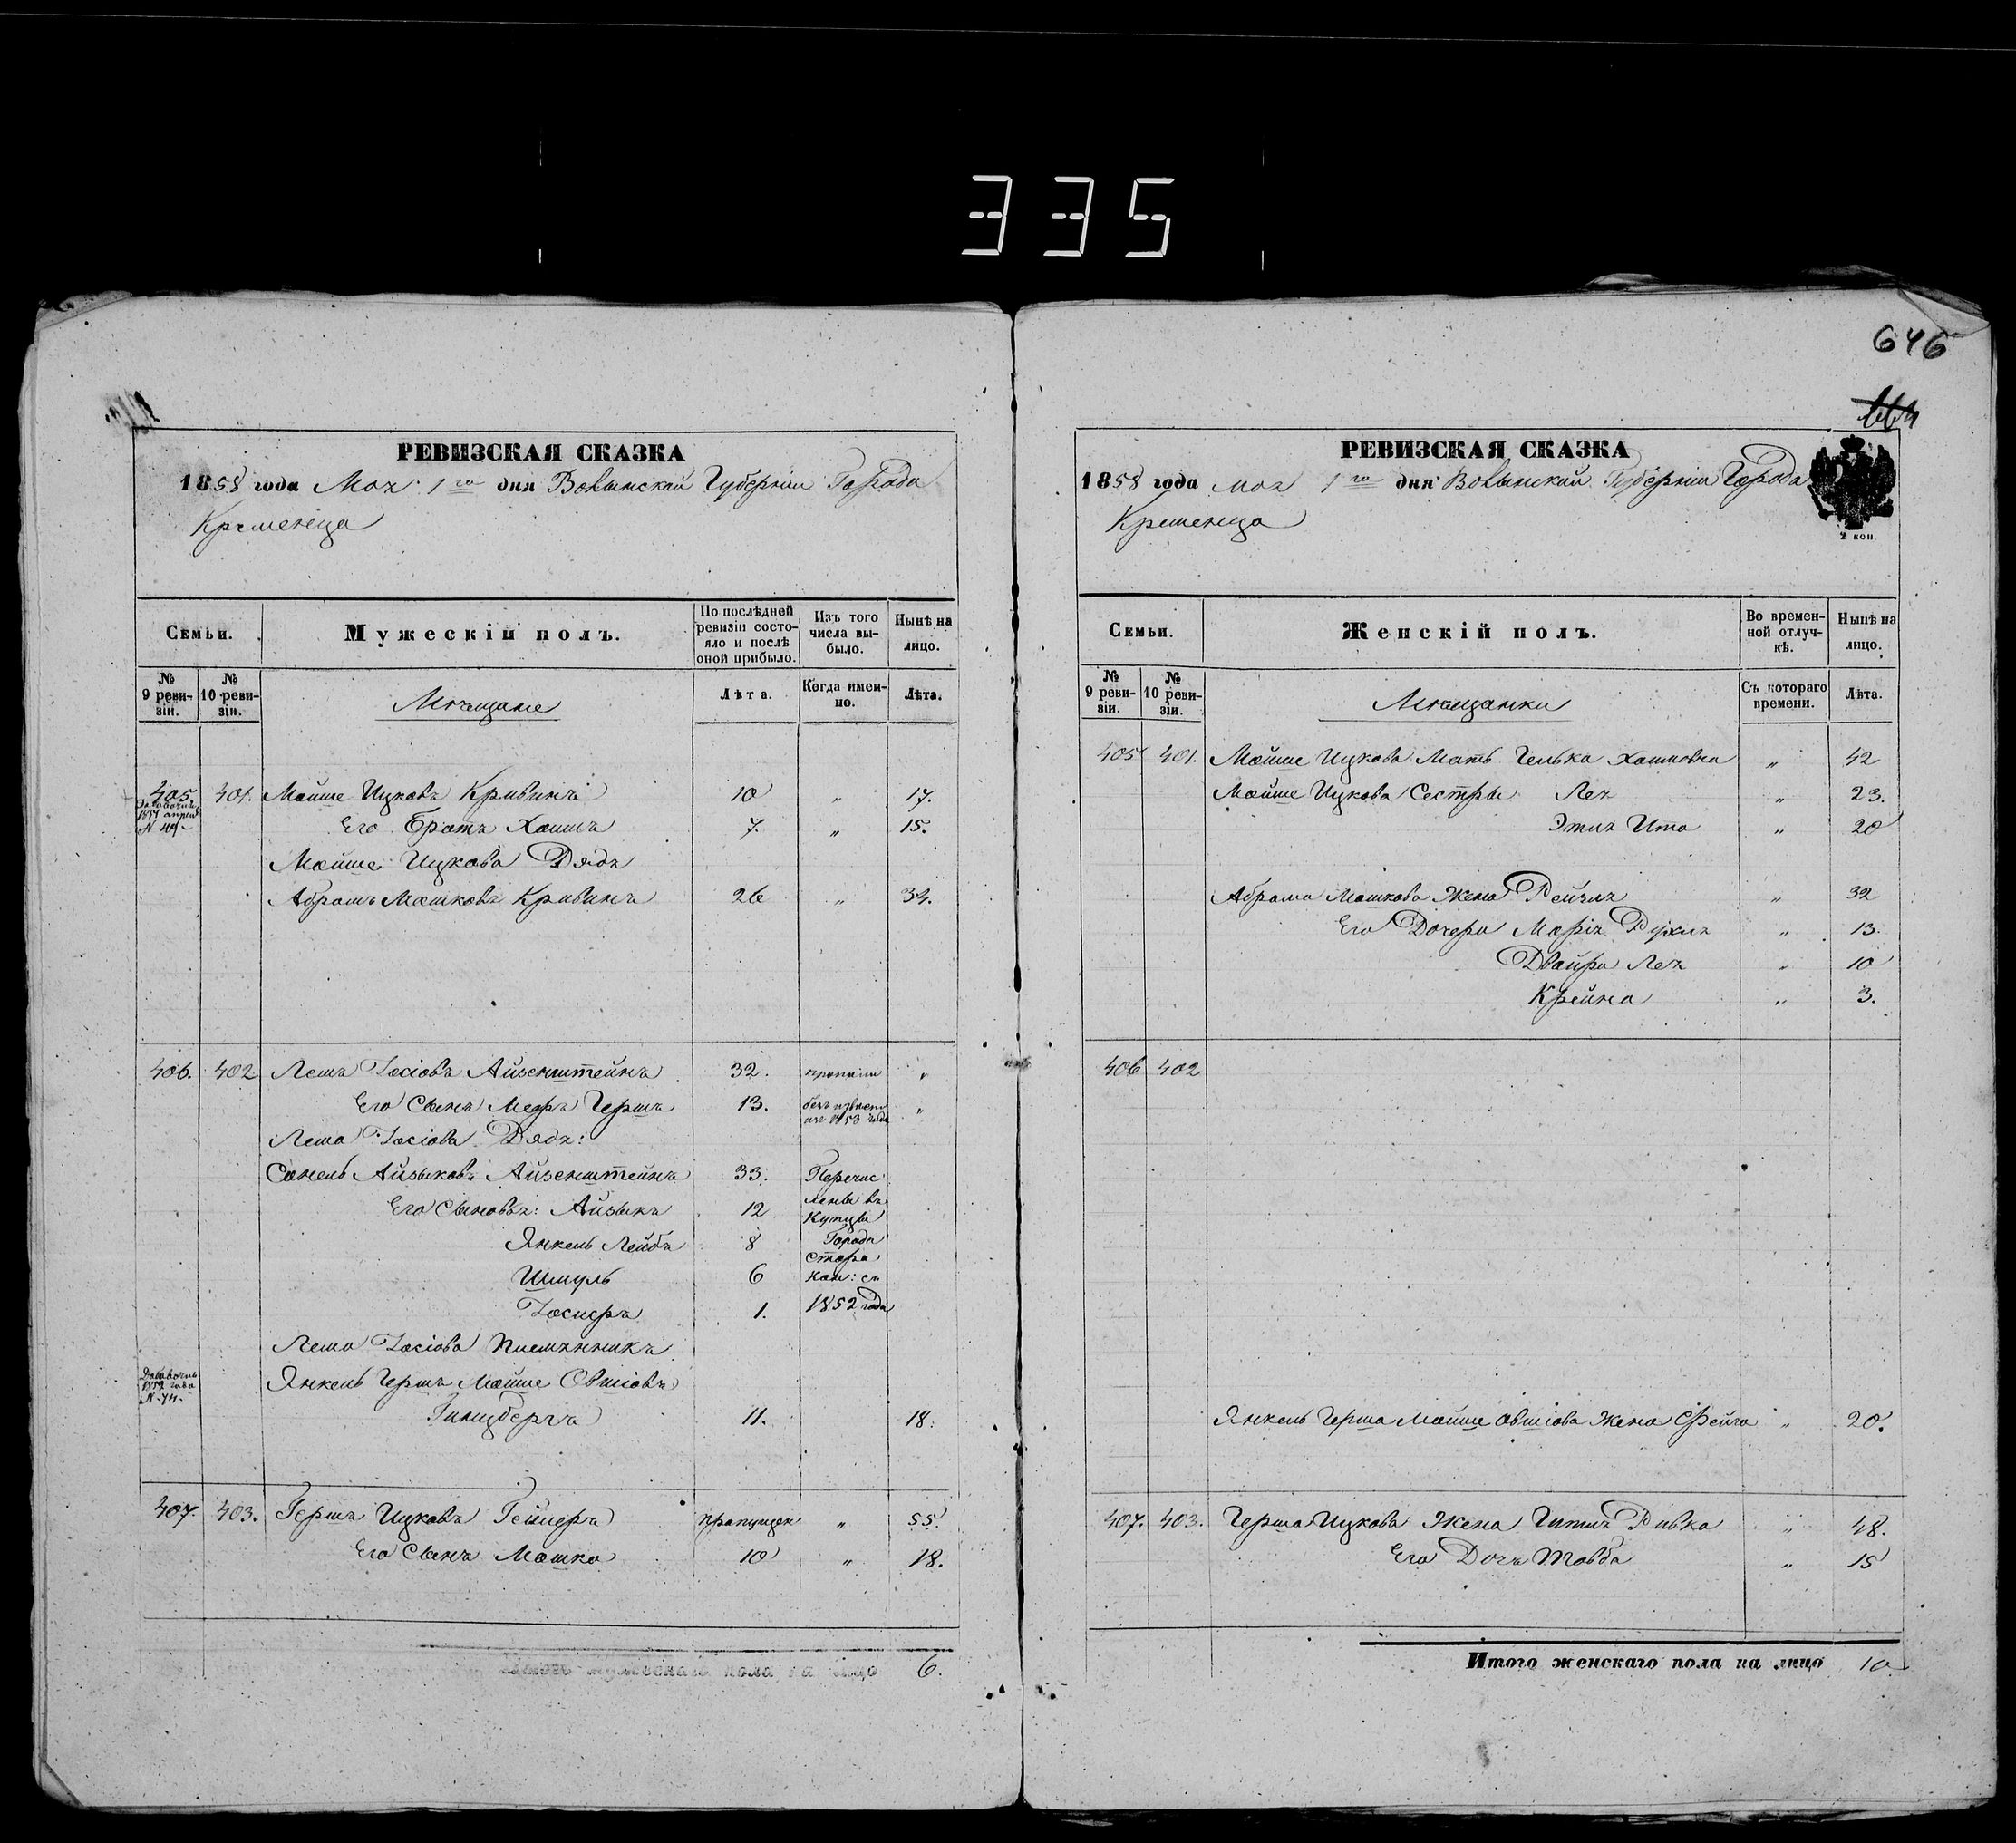 335
646
РЕВИЗСКАЯ СКАЗКА
1858 года Мая 1го дня Волынской Губерніи Города
Кременца
Семьи.
Мужескій полъ.
По послѣдней ревизіи состояло и послѣ оной прибыло.
Изъ того числа выбыло.
Нынѣ на лицо.
№ 9 ревизіи.
№ 10 ревизіи.
Мѣщане
Лѣта.
Когда именно.
Лѣта.
405 401. Мойше Ицковъ Кривинъ 10 „ 17.
Его Братъ Хаимъ 7. „ 15.
Мойше Ицкова Дядя
Абрамъ Мошковъ Кривинъ 26 „ 34.
406. 402 Лемъ Іосіовъ Айзенштейнъ 32. „
Его Сынъ Мееръ Гершъ 13. безъ извест „
из 1853 года
Лема Іосіова Дядя:
Санель Айзыковъ Айзенштейнъ 33. Перечис
Его Сыновья: Айзыкъ 12 лены въ
Купцы
Янкель Лейба 8 Города
Старо
Шмуль 6 кон: съ
Іосифъ 1. 1852 года
Лема Іосіова Племянникъ
Добавочн.
1852 года
N. 74.
Янкель Гершъ Мойше Овшіовъ
Гинцбергъ 11. 18.
407. 403. Гершъ Ицковъ Гейлеръ пропущен „ 55.
Его Сынъ Мошко 10 „ 18.
Итого мужескаго пола на лицо 6.
РЕВИЗСКАЯ СКАЗКА
1858 года мая 1го дня Волынской Губерніи Города
Кременца
2 коп
Семьи.
Женскій полъ.
Во временной отлучкѣ.
Нынѣ на лицо.
№ 9 ревизіи.
№ 10 ревизіи.
Мѣщанки
Съ котораго времени.
Лѣта.
405 401. Мойше Ицкова Мать Гелька Хаимовна „ 42
Мойше Ицкова Сестры Лея „ 23.
Этля Ита „ 20
Абрама Мошкова Жена Рейзля „ 32
Его Дочери Марія Рухля „ 13.
Двойра Лея „ 10
Крейна „ 3.
406 402
Янкель Герша Мойше Овшіова Жена Фейга „ 20.
407. 403. Герша Ицкова Жена Гитля Ривка „ 48.
Его Дочь Товба „ 15
Итого женскаго пола на лицо 10